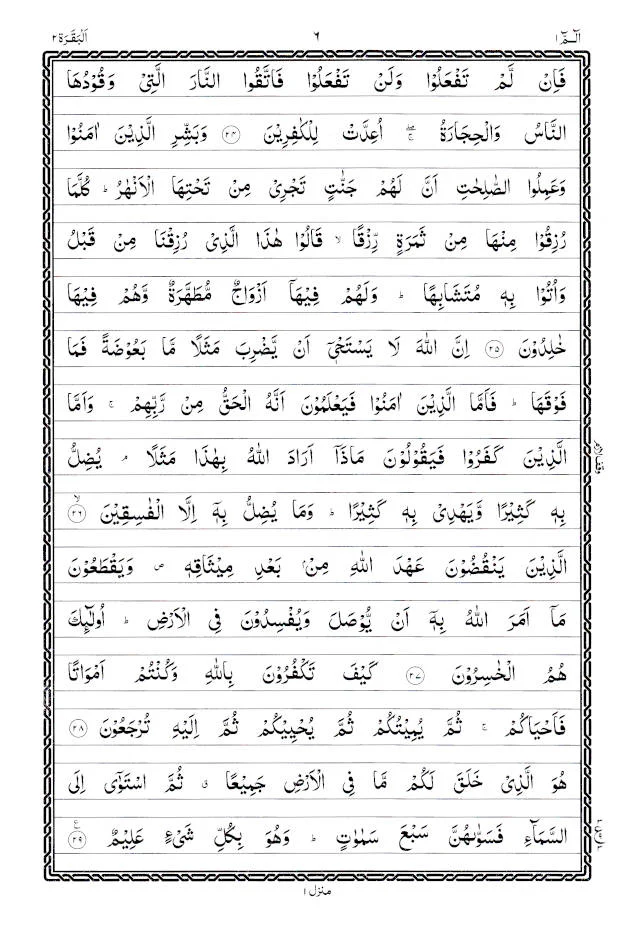 الٓـمّٓ ١ ٦ اَلْبَقَرَة ٢
فَاِنْ لَّمْ تَفْعَلُوْا وَلَنْ تَفْعَلُوْا فَاتَّقُوا النَّارَ الَّتِیْ وَقُوْدُهَا
النَّاسُ وَالْحِجَارَةُ ۖۚ اُعِدَّتْ لِلْكٰفِرِیْنَ ۝٢٤ وَبَشِّرِ الَّذِیْنَ اٰمَنُوْا
وَعَمِلُوا الصّٰلِحٰتِ اَنَّ لَهُمْ جَنّٰتٍ تَجْرِیْ مِنْ تَحْتِهَا الْاَنْهٰرُ ؕ كُلَّمَا
رُزِقُوْا مِنْهَا مِنْ ثَمَرَةٍ رِّزْقًا ۙ قَالُوْا هٰذَا الَّذِیْ رُزِقْنَا مِنْ قَبْلُ
وَاُتُوْا بِهٖ مُتَشَابِهًا ؕ وَلَهُمْ فِیْهَاۤ اَزْوَاجٌ مُّطَهَّرَةٌ وَّهُمْ فِیْهَا
خٰلِدُوْنَ ۝٢٥ اِنَّ اللّٰهَ لَا یَسْتَحْیٖۤ اَنْ یَّضْرِبَ مَثَلًا مَّا بَعُوْضَةً فَمَا
فَوْقَهَا ؕ فَاَمَّا الَّذِیْنَ اٰمَنُوْا فَیَعْلَمُوْنَ اَنَّهُ الْحَقُّ مِنْ رَّبِّهِمْ ۚ وَاَمَّا
الَّذِیْنَ كَفَرُوْا فَیَقُوْلُوْنَ مَاذَاۤ اَرَادَ اللّٰهُ بِهٰذَا مَثَلًا ۘ یُضِلُّ
بِهٖ كَثِیْرًا وَّیَهْدِیْ بِهٖ كَثِیْرًا ؕ وَمَا یُضِلُّ بِهٖۤ اِلَّا الْفٰسِقِیْنَ ۝٢٦ۙ
الَّذِیْنَ یَنْقُضُوْنَ عَهْدَ اللّٰهِ مِنْۢ بَعْدِ مِیْثَاقِهٖ ۪ وَیَقْطَعُوْنَ
مَاۤ اَمَرَ اللّٰهُ بِهٖۤ اَنْ یُّوْصَلَ وَیُفْسِدُوْنَ فِی الْاَرْضِ ؕ اُولٰٓئِكَ
هُمُ الْخٰسِرُوْنَ ۝٢٧ كَیْفَ تَكْفُرُوْنَ بِاللّٰهِ وَكُنْتُمْ اَمْوَاتًا
فَاَحْیَاكُمْ ۚ ثُمَّ یُمِیْتُكُمْ ثُمَّ یُحْیِیْكُمْ ثُمَّ اِلَیْهِ تُرْجَعُوْنَ ۝٢٨
هُوَ الَّذِیْ خَلَقَ لَكُمْ مَّا فِی الْاَرْضِ جَمِیْعًا ۗ ثُمَّ اسْتَوٰۤی اِلَی
السَّمَآءِ فَسَوّٰىهُنَّ سَبْعَ سَمٰوٰتٍ ؕ وَهُوَ بِكُلِّ شَیْءٍ عَلِیْمٌ ۝٢٩ ع
منزل ١